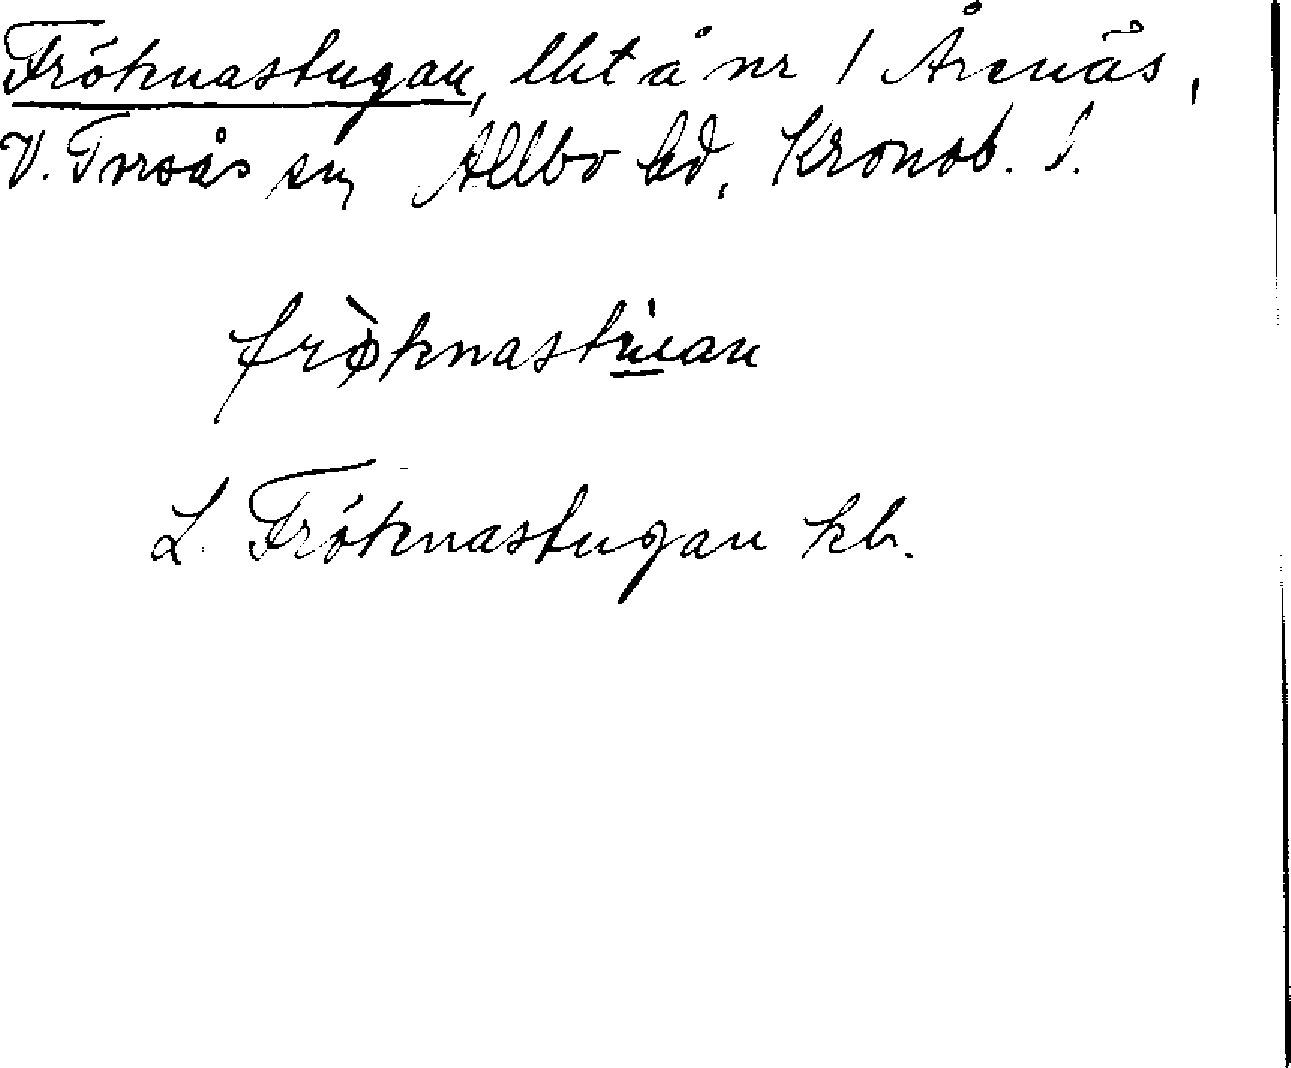 Fröknastugan, lht å nr 1 Årenäs,
V. Torsås sn, Allbo hd, Kronob. l.
fròknastu̇an
L. Fröknastugan kb.